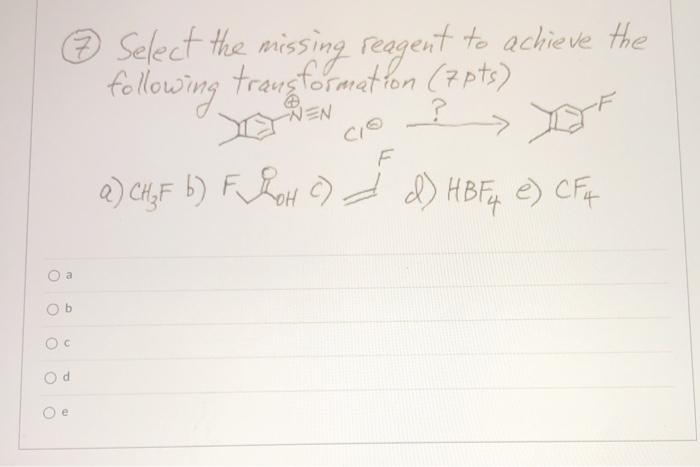 ⑦ Select the missing reagent to achieve the
following transformation (7pts)
⊕
N≡N Cl⊖ ? F
a) CH₃F b) F O OH c) F d) HBF₄ e) CF₄
a
b
c
d
e